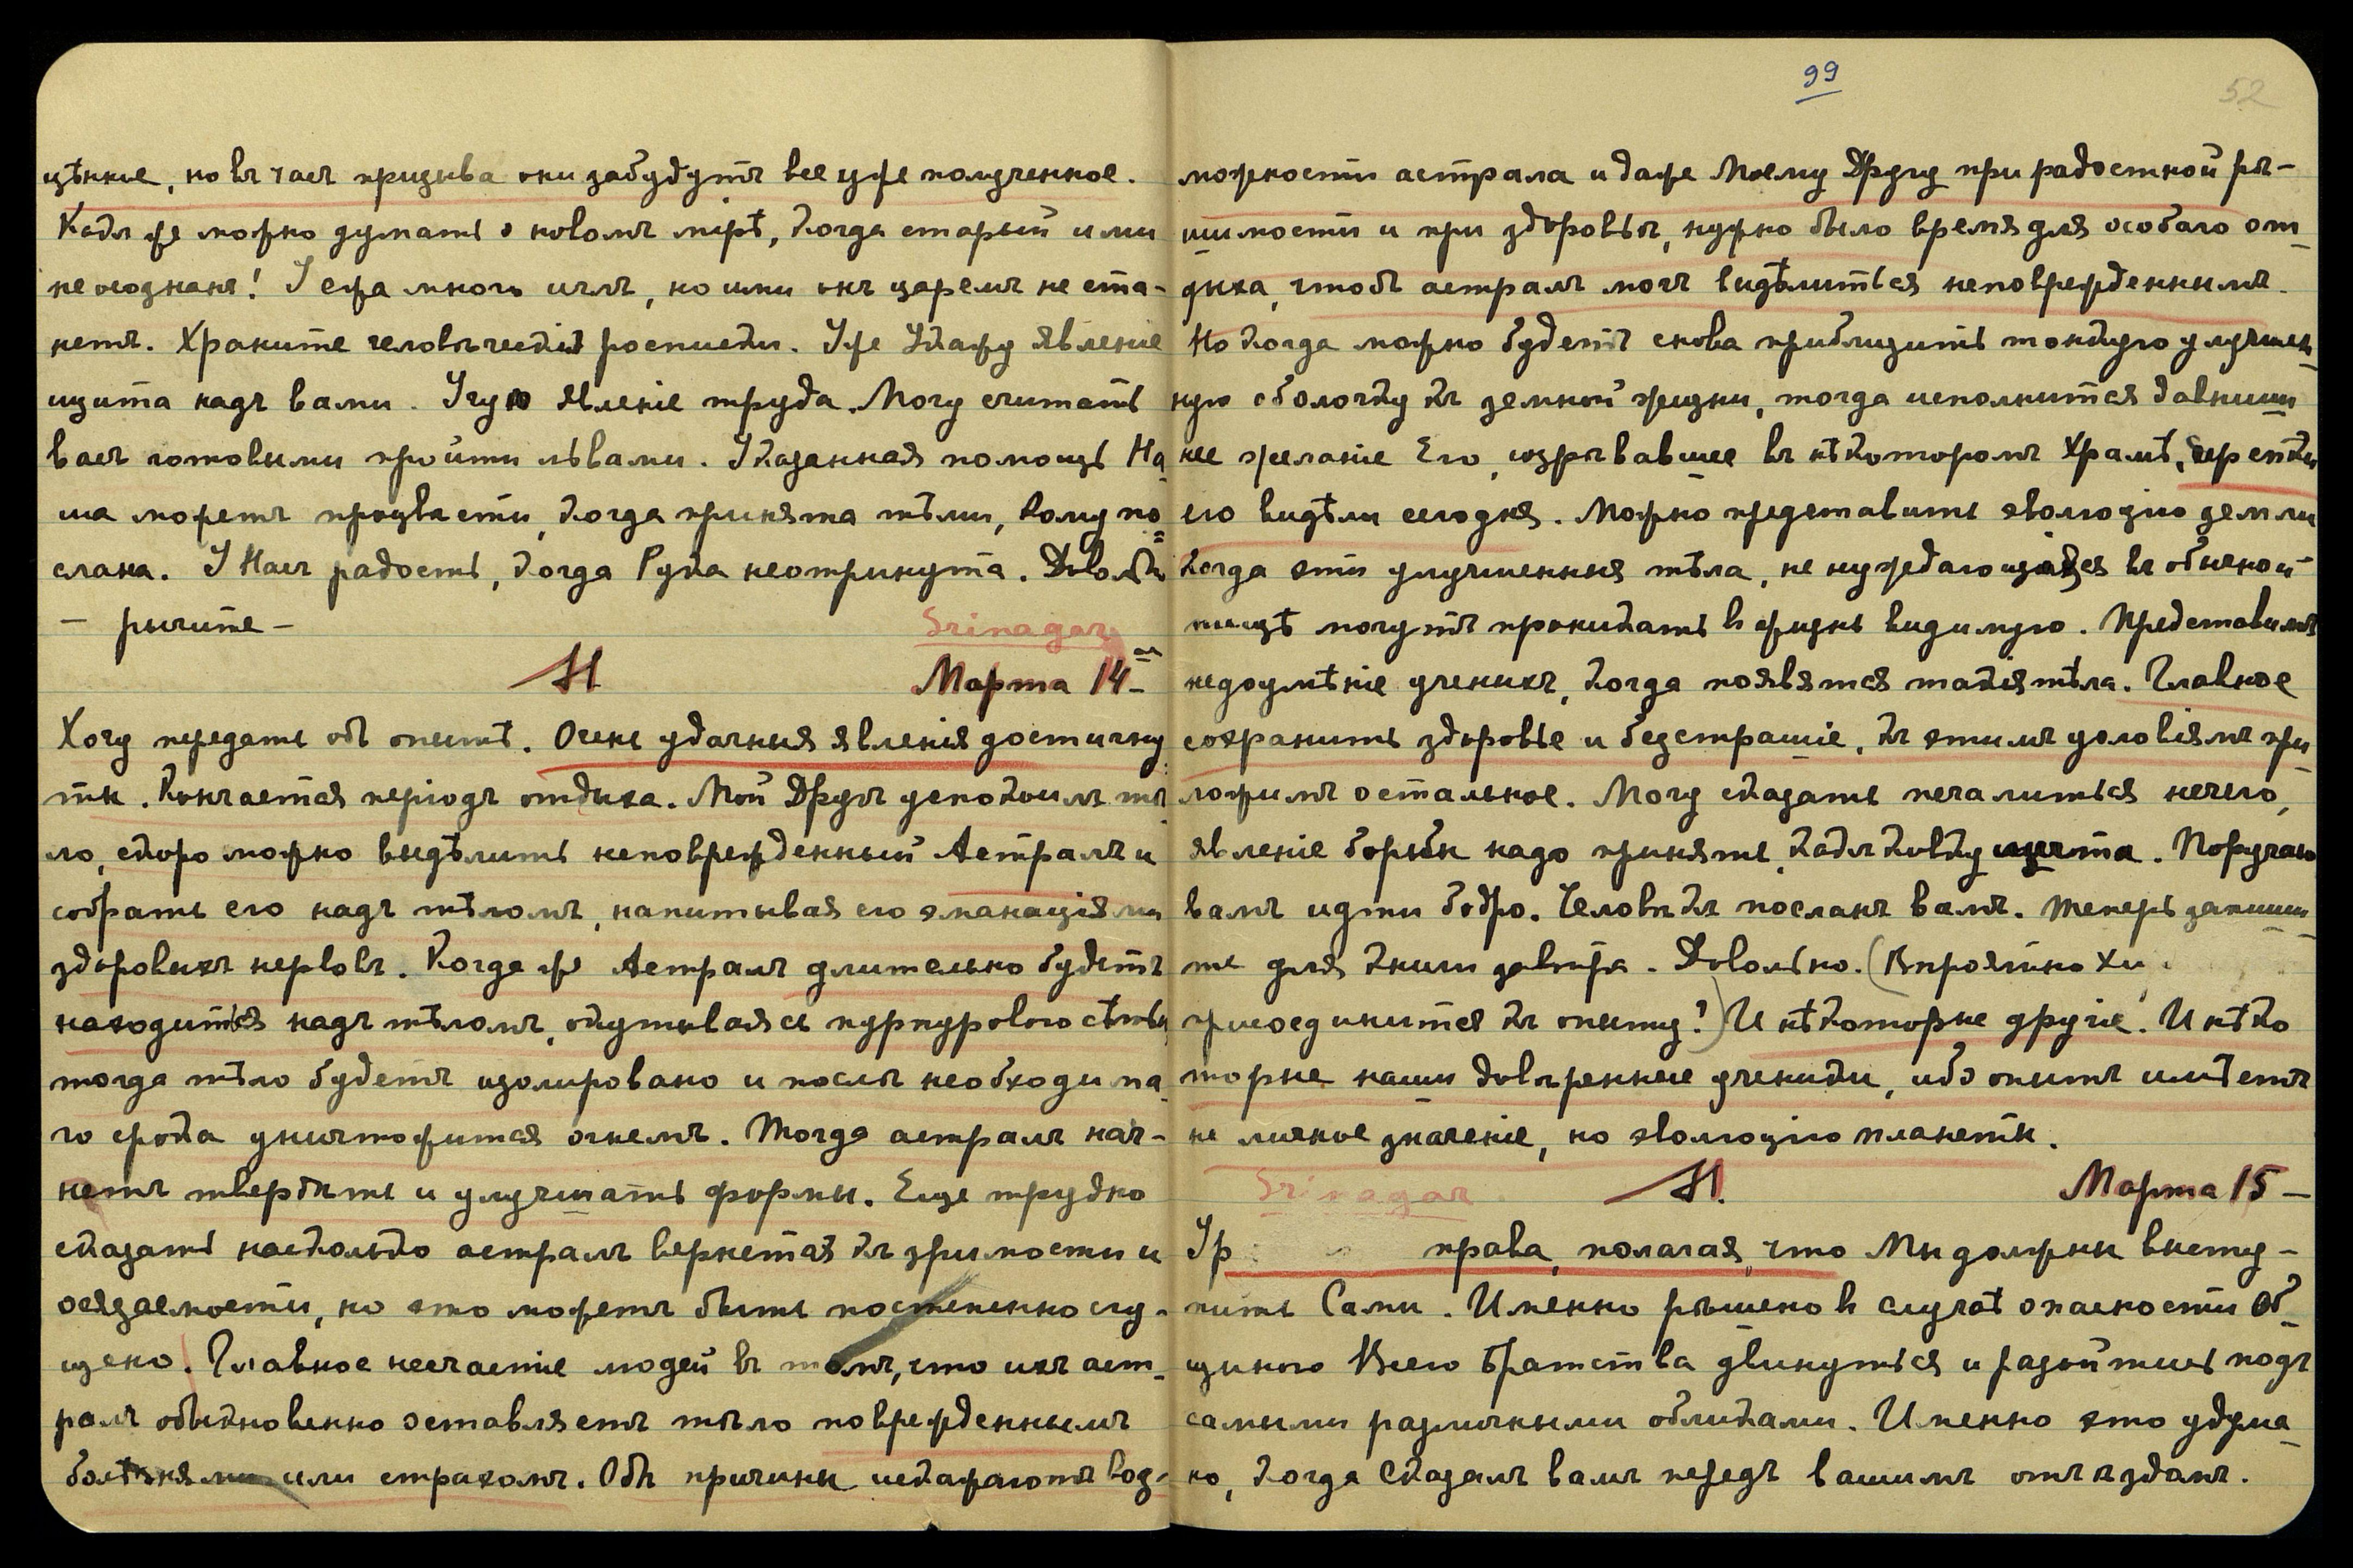 цѣнное, но въ часъ призыва они забудутъ все уже полученное.
Какъ же можно думать о новомъ мірѣ, когда старый ими
не осознанъ! У ежа много иглъ, но ими онъ царемъ не ста-
нетъ. Храните человѣческія росписки. Уже Укажу явленіе
щита надъ вами. Учую явленіе труда. Могу считать
васъ готовыми пройти львами. Указанная помощь На
ша можетъ процвѣсти, когда принята тѣми, кому по
слана. У Насъ радость, когда Рука неотринута. Довольно
– рычите –
Srinagar
М Марта 14–ое
Хочу передать объ опытѣ. Очень удачныя явленія достигну
ты. Кончается періодъ отдыха. Мой Другъ успокоилъ тѣ
ло, скоро можно выдѣлить неповрежденный Астралъ и
собрать его надъ тѣломъ, напитывая его эманаціями
здоровыхъ нервовъ. Когда же Астралъ длительно будетъ
находиться надъ тѣломъ, окутываясь пурпуровою сѣтью,
тогда тѣло будетъ изолировано и послѣ необходима
го срока уничтожится огнемъ. Тогда астралъ нач-
нетъ твердѣть и улучшать формы. Еще трудно
сказать насколько астралъ вернется къ зримости и
осязаемости, но это можетъ быть постепенно сгу-
щено. Главное несчастіе людей въ томъ, что ихъ аст-
ралъ обыкновенно оставляетъ тѣло поврежденнымъ
болѣзнями или страхомъ. Обѣ причины искажаютъ воз-
99
52
можности астрала и даже Моему Другу при радостной рѣ-
шимости и при здоровьѣ, нужно было время для особаго от
дыха, чтобъ астралъ могъ выдѣлиться неповрежденнымъ.
Но когда можно будетъ снова приблизить тонкую улучшен
ную оболочку къ земной жизни, тогда исполнится давниш
нее желаніе Его, созрѣвавшее въ нѣкоторомъ Храмѣ, чертежи
его видѣли сегодня. Можно представить эволюцію земли
когда эти улучшенныя тѣла, не нуждающіяся въ обычной
пищѣ могутъ проникать въ жизнь видимую. Представимъ
недоумѣніе ученыхъ, когда появятся такія тѣла. Главное
сохранить здоровье и безстрашіе, къ этимъ условіямъ при
ложимъ остальное. Могу сказать печалиться нечего,
явленіе борьбы надо принять, какъ ковку щита. Поручаю
вамъ идти бодро. Человѣкъ посланъ вамъ. Теперь запиши
те для книги завтра. Довольно. (Вѣроятно Хи.
присоединится къ опыту?) И нѣкоторые другіе. И нѣко
торые наши довѣренные ученики, ибо опытъ имѣетъ
не личное значеніе, но эволюцію планеты.
Srinagar М Марта 15 –
Ур права, полагая, что Мы должны высту-
пить Сами. Именно рѣшено въ случаѣ опасности Об
щиною Всего Братства двинуться и разойтись подъ
самыми различными обликами. Именно это удума
но, когда Сказалъ вамъ передъ вашимъ отъѣздомъ.